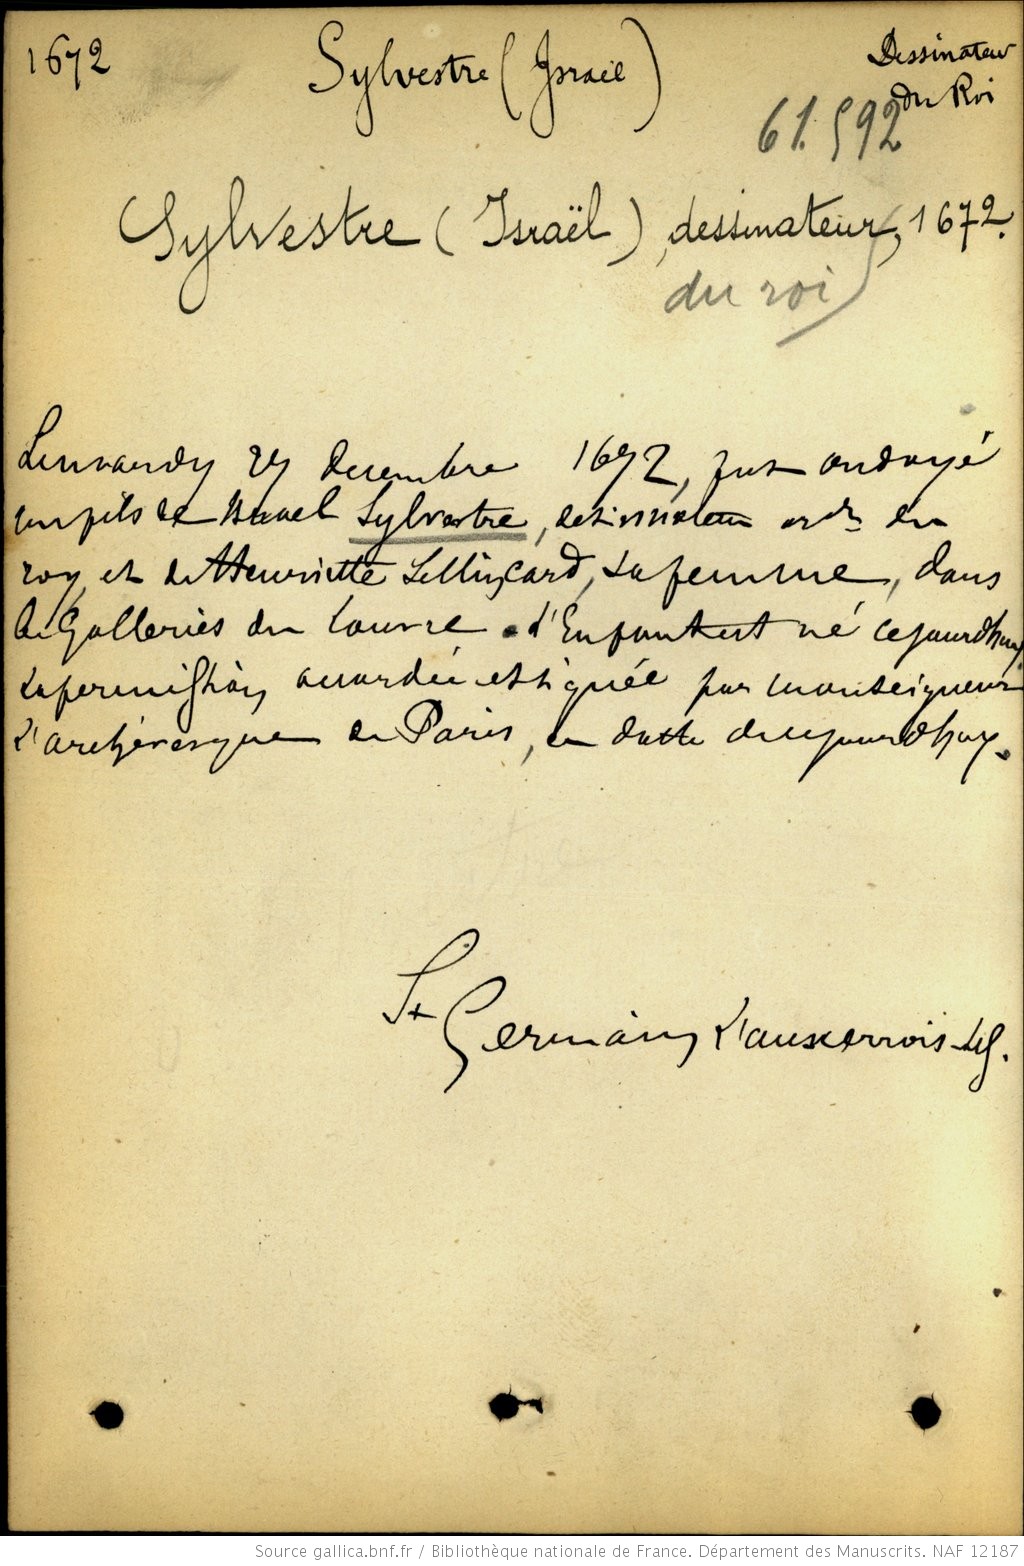 1672 Sylvestre (Israel) Dessinateur
du Roi
61.592
Sylvestre (Israël), dessinateur, 1672.
du roi
Le mardy 27 decembre 1672, fut ondoyé
un fils de Israel Sylvestre, dessinateur ordre du
roy, et de Henriette Sellinçard, sa femme, dans
les Galleries du Louvre. L'Enfant est né cejourdhuy
la permission accordée et signée par monseigneur
l'archevesque de Paris, en datte de cejourdhuy.
St Germain l'auxerrois
Source gallica.bnf.fr / Bibliothèque nationale de France. Département des Manuscrits. NAF 12187